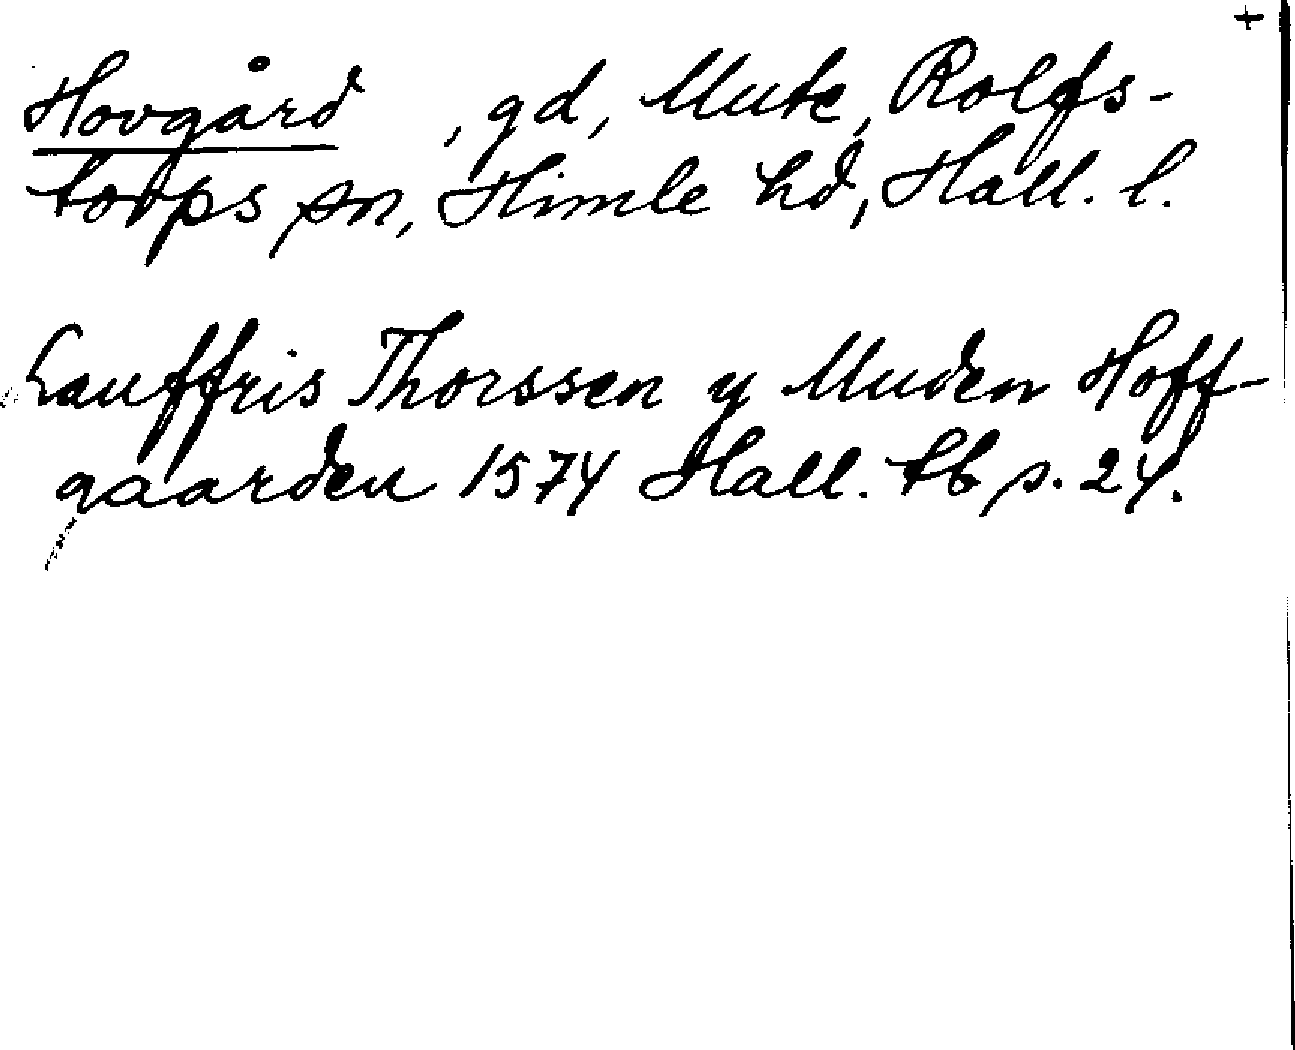 +
Hovgård , gd, Mute, Rolfs-
torps sn, Himle hd, Hall. l.
Lauffris Thorssen y Muden Hoff-
gaarden 1574 Hall. tb s. 24.